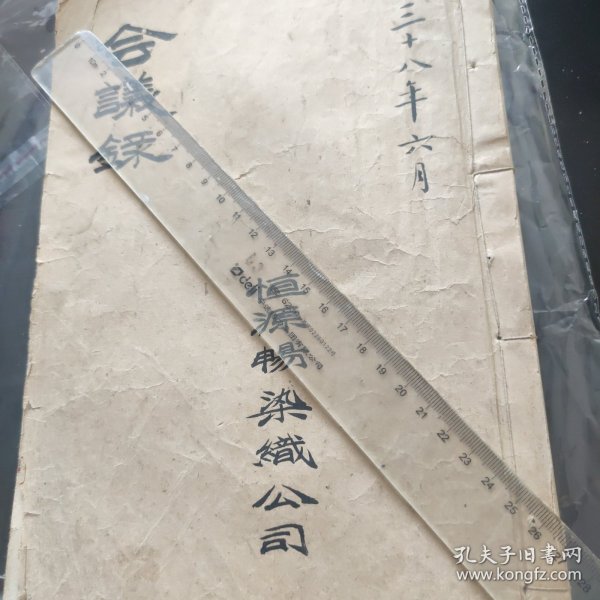 三十八年六月
会議録
恒源暢染織公司
deli
0 1 2 5 6 7 8 9 10 11 12 13 14 15 16 17 18 19 20 21 22 23 24 25 26 28
孔夫子旧书网
www.kongfz.com